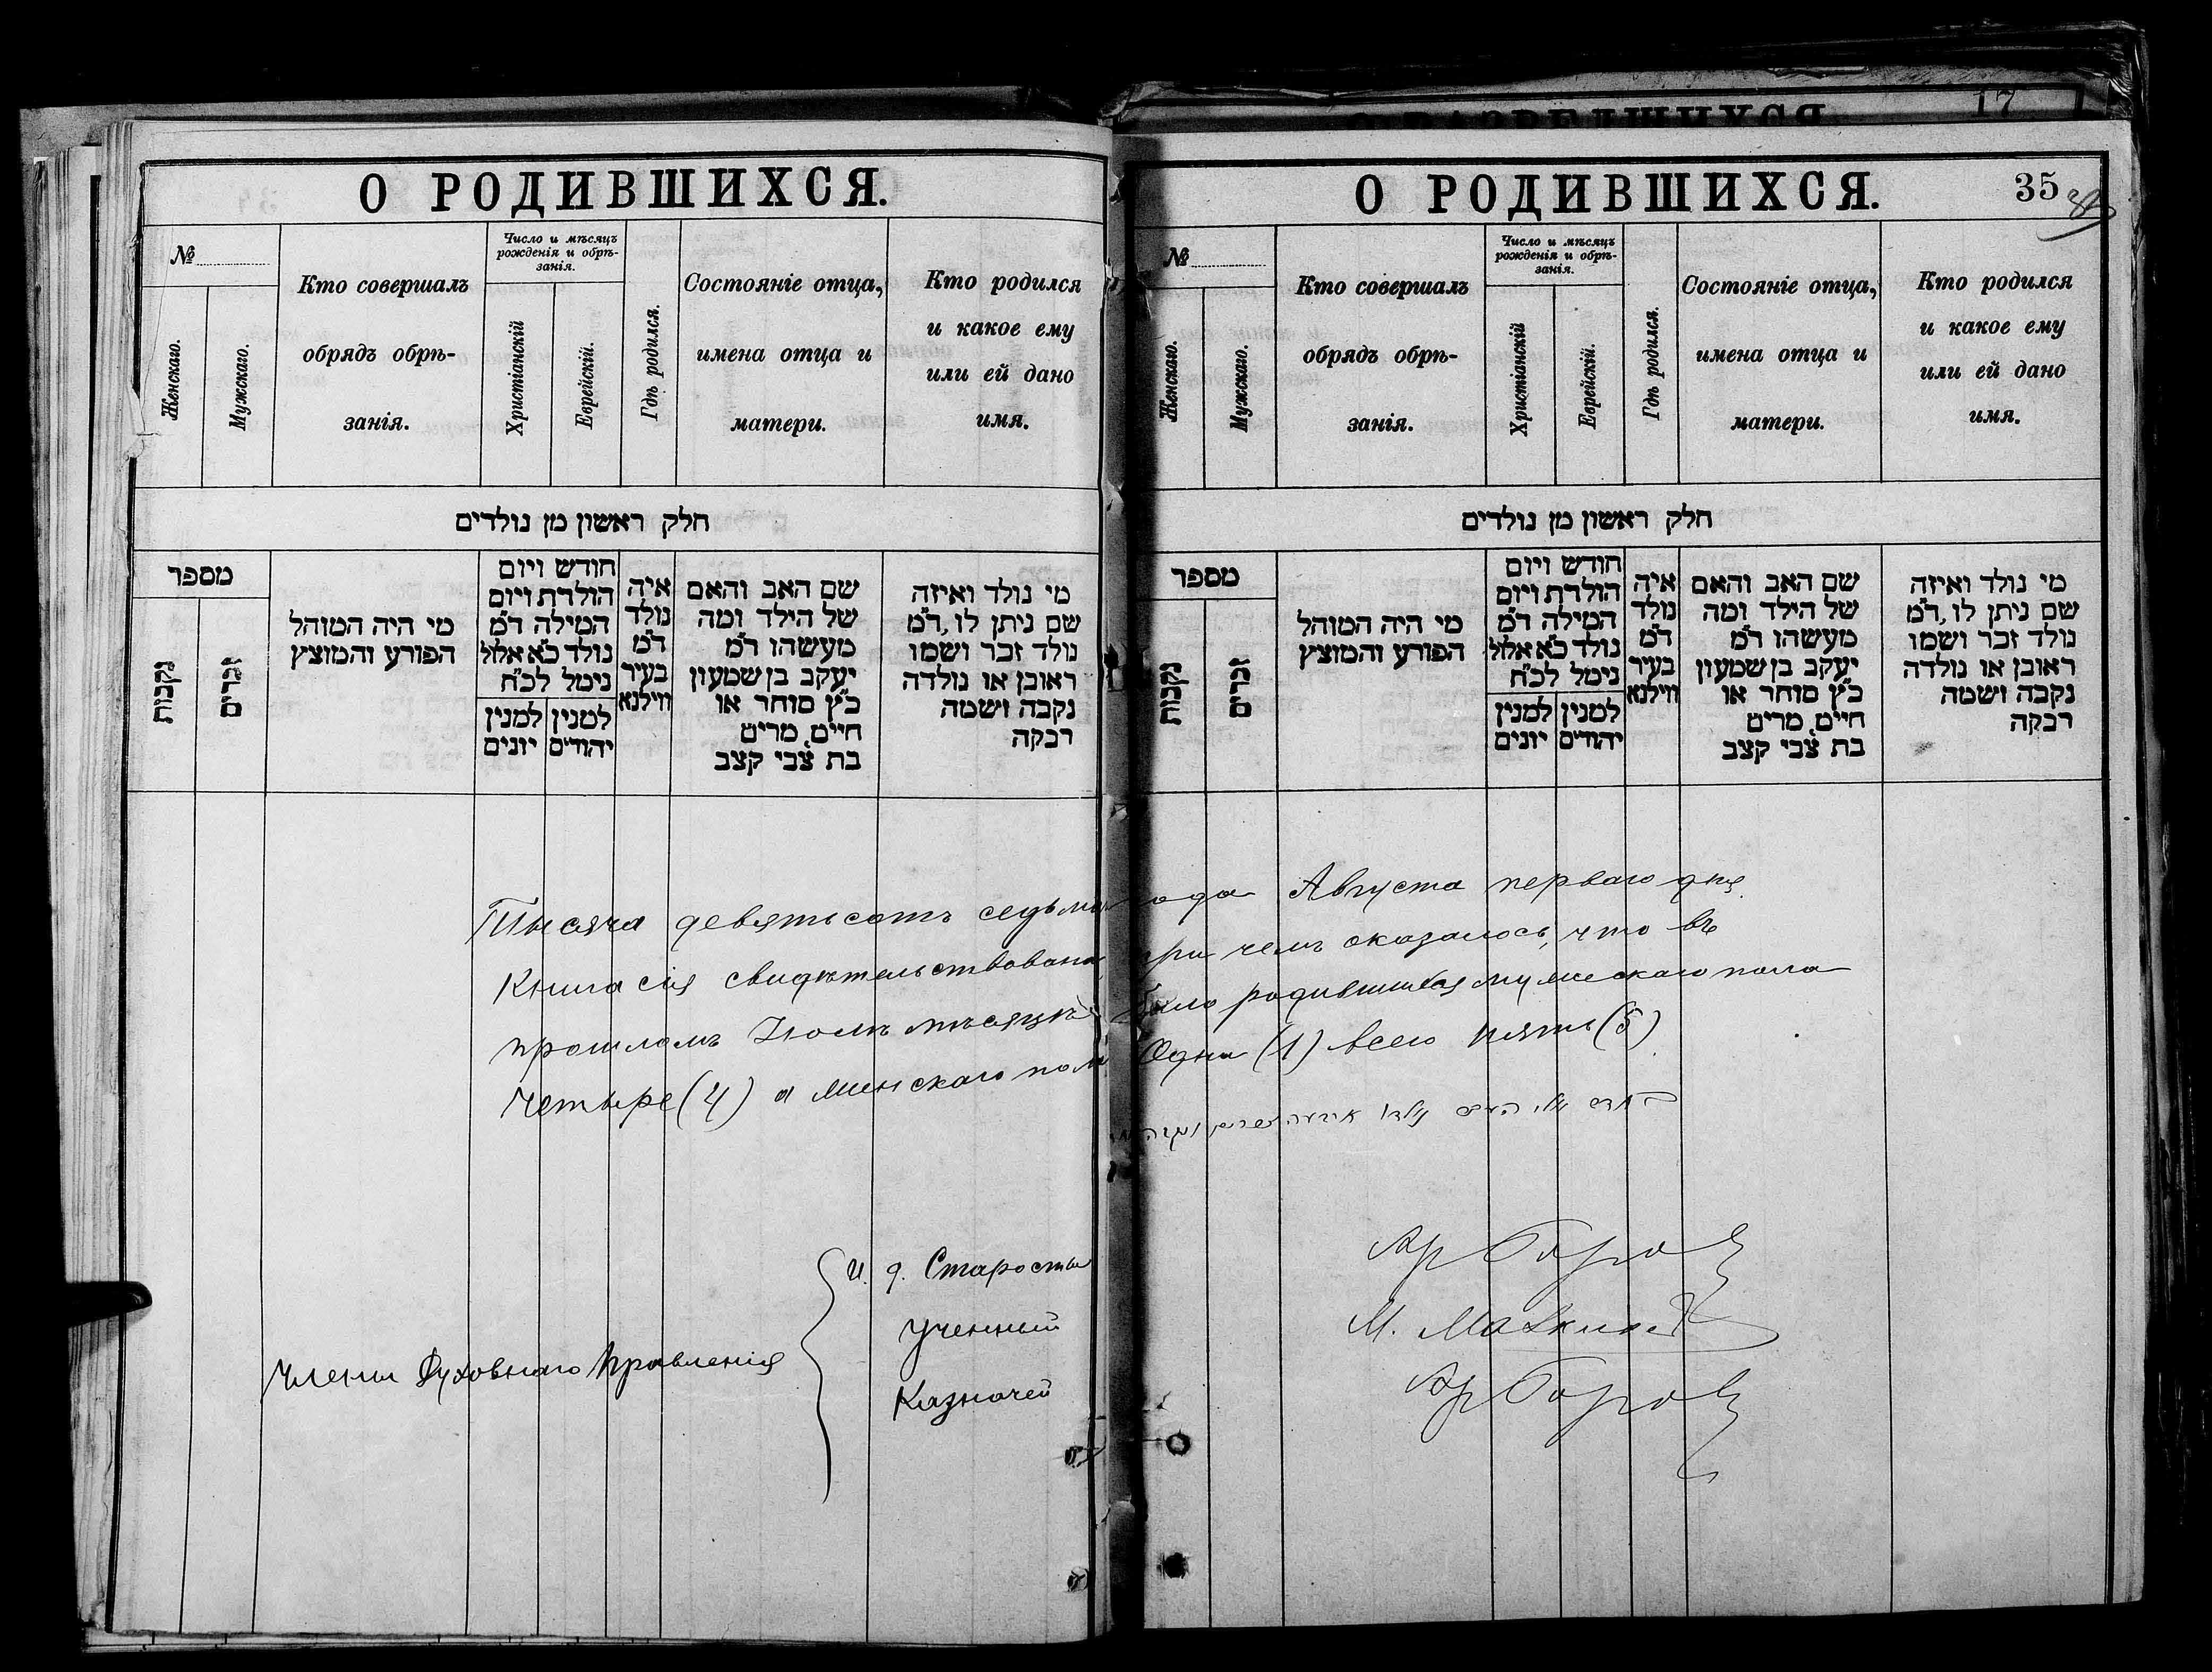 О РОДИВШИХСЯ.
№
Женскаго.
Мужскаго.
Кто совершалъ
обрядъ обрѣ-
занія.
Число и мѣсяцъ
рожденія и обрѣ-
занія.
Христіанскій
Еврейскій.
Гдѣ родился.
Состояніе отца,
имена отца и
матери.
Кто родился
и какое ему
или ей дано
имя.
חלק ראשון מן נולדים
מספר
נקבות
זכרים
מי היה המוהל
הפורע והמוצץ
חודש ויום
הולדת ויום
המילה ד״מ
נולד כ״א אלול
נימל לכ״ח
למנין יונים
למנין יהודים
איה
נולד
ד״מ
בעיר
ווילנא
שם האב והאם
של הילד ומה
מעשהו ד״מ
יעקב בן שמעון
כ״ץ סוחר או
חיים, מרים
בת צבי קצב
מי נולד ואיזה
שם ניתן לו, ד״מ
נולד זכר ושמו
ראובן או נולדה
נקבה ושמה
רבקה
17
О РОДИВШИХСЯ.
35
№
Женскаго.
Мужскаго.
Кто совершалъ
обрядъ обрѣ-
занія.
Число и мѣсяцъ
рожденія и обрѣ-
занія.
Христіанскій
Еврейскій.
Гдѣ родился.
Состояніе отца,
имена отца и
матери.
Кто родился
и какое ему
или ей дано
имя.
חלק ראשון מן נולדים
מספר
נקבות
זכרים
מי היה המוהל
הפורע והמוצץ
חודש ויום
הולדת ויום
המילה ד״מ
נולד כ״א אלול
נימל לכ״ח
למנין יונים
למנין יהודים
איה
נולד
ד״מ
בעיר
ווילנא
שם האב והאם
של הילד ומה
מעשהו ד״מ
יעקב בן שמעון
כ״ץ סוחר או
חיים, מרים
בת צבי קצב
מי נולד ואיזה
שם ניתן לו, ד״מ
נולד זכר ושמו
ראובן או נולדה
נקבה ושמה
רבקה
Тысяча девятьсотъ седьмого года Августа перваго дня
Книга сія свидѣтельствована при чемъ оказалось, что въ
прошломъ Іюлѣ мѣсяцѣ было родившихся мужескаго пола
Четыре (4) а женскаго пола Одна (1) всего пять (5)
Члены Духовнаго Правленія
И. д. Старосты
Ученный
Казначей